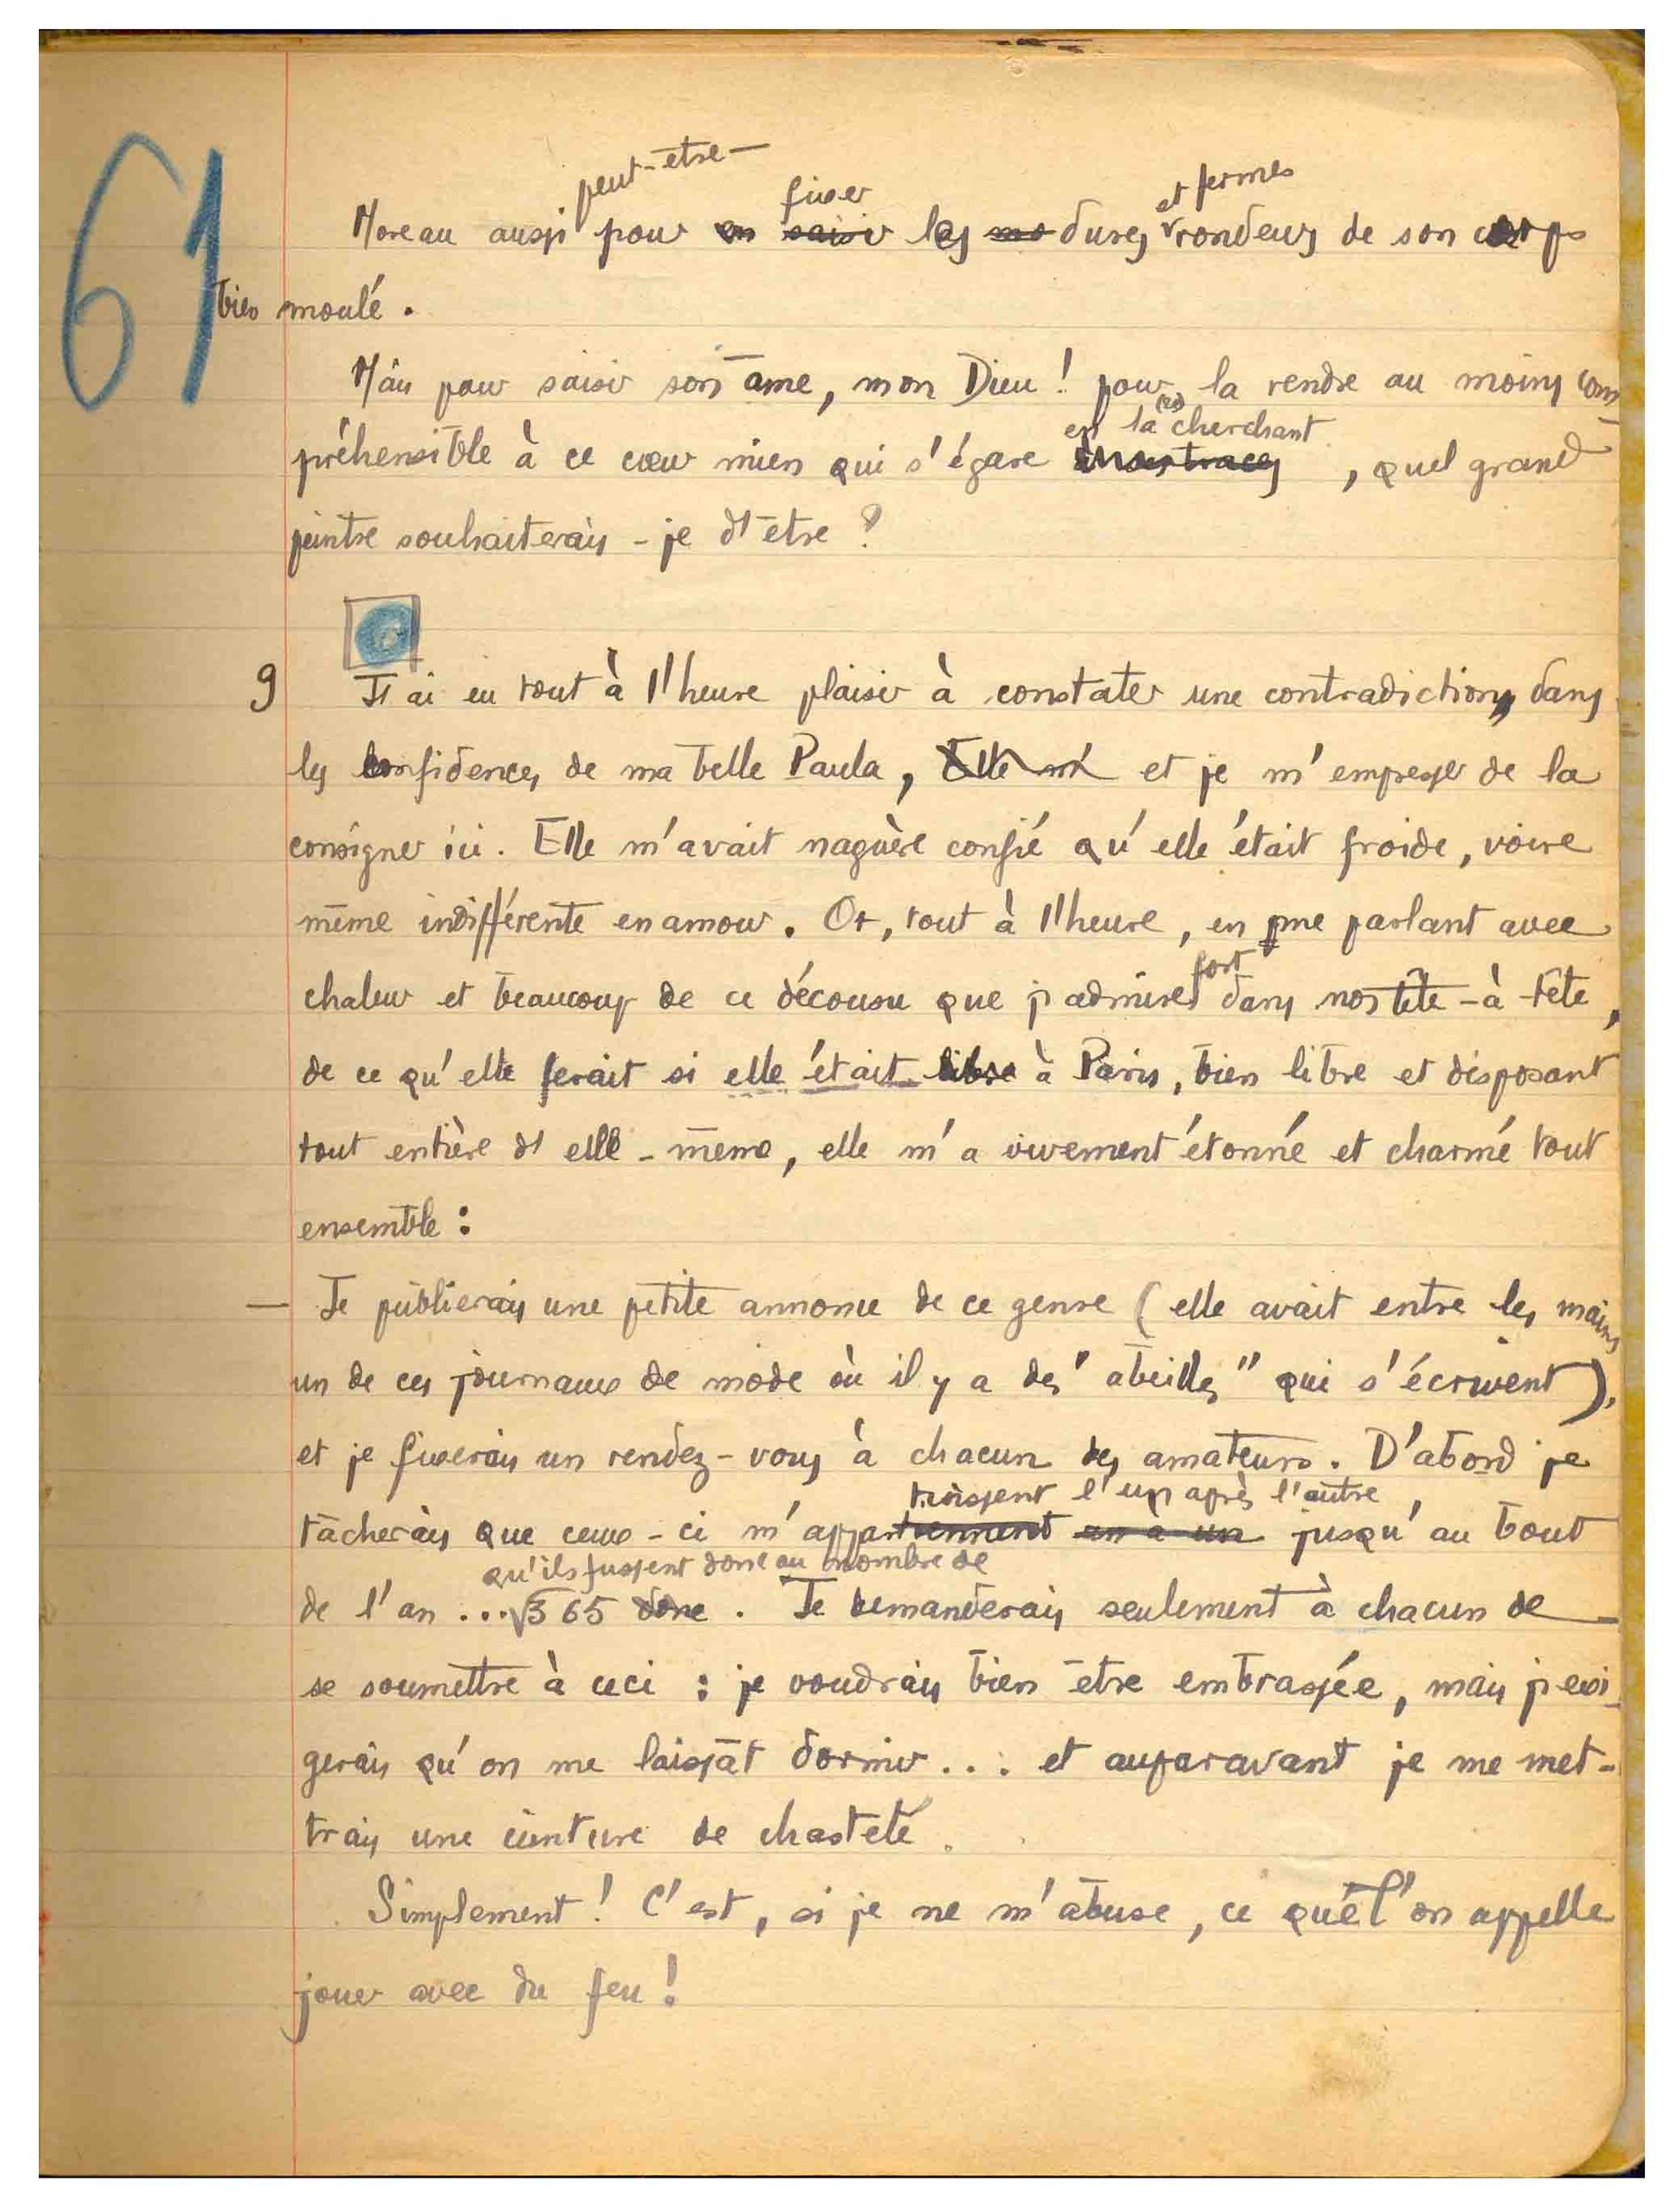 61
peut-être
fixer
et fermes
Moreau aussi pour en saisir les mo dures rondeurs de son corps
bien moulé.
Mais pour saisir son âme, mon Dieu ! pour la rendre au moins com-
en la (re) cherchant
préhensible à ce cœur mien qui s'égare , quel grand
peintre souhaiterais-je d'être ?
9 J'ai eu tout à l'heure plaisir à constater une contradiction, dans
les confidences de ma belle Paula, Elle m'a et je m'empresse de la
consigner ici. Elle m'avait naguère confié qu'elle était froide, voire
même indifférente en amour. Or, tout à l'heure, en me parlant avec
fort
chaleur et beaucoup de ce décousu que j'admire dans nos tête-à-tête,
de ce qu'elle ferait si elle était libre à Paris, bien libre et disposant
tout entière d'elle-même, elle m'a vivement étonné et charmé tout
ensemble :
— Je publierais une petite annonce de ce genre (elle avait entre les mains
un de ces journaux de mode où il y a des "abeilles" qui s'écrivent),
et je fixerais un rendez-vous à chacun des amateurs. D'abord je
tinssent l'un après l'autre,
tâcherais que ceux-ci m'appartiennent un à un jusqu'au bout
qu'ils fussent donc au nombre de
de l'an ... 365 donc. Je demanderais seulement à chacun de
se soumettre à ceci : je voudrais bien être embrassée, mais j'exi-
gerais qu'on me laissât dormir... et auparavant je me met-
trais une ceinture de chasteté.
Simplement ! C'est, si je ne m'abuse, ce que l'on appelle
jouer avec du feu !